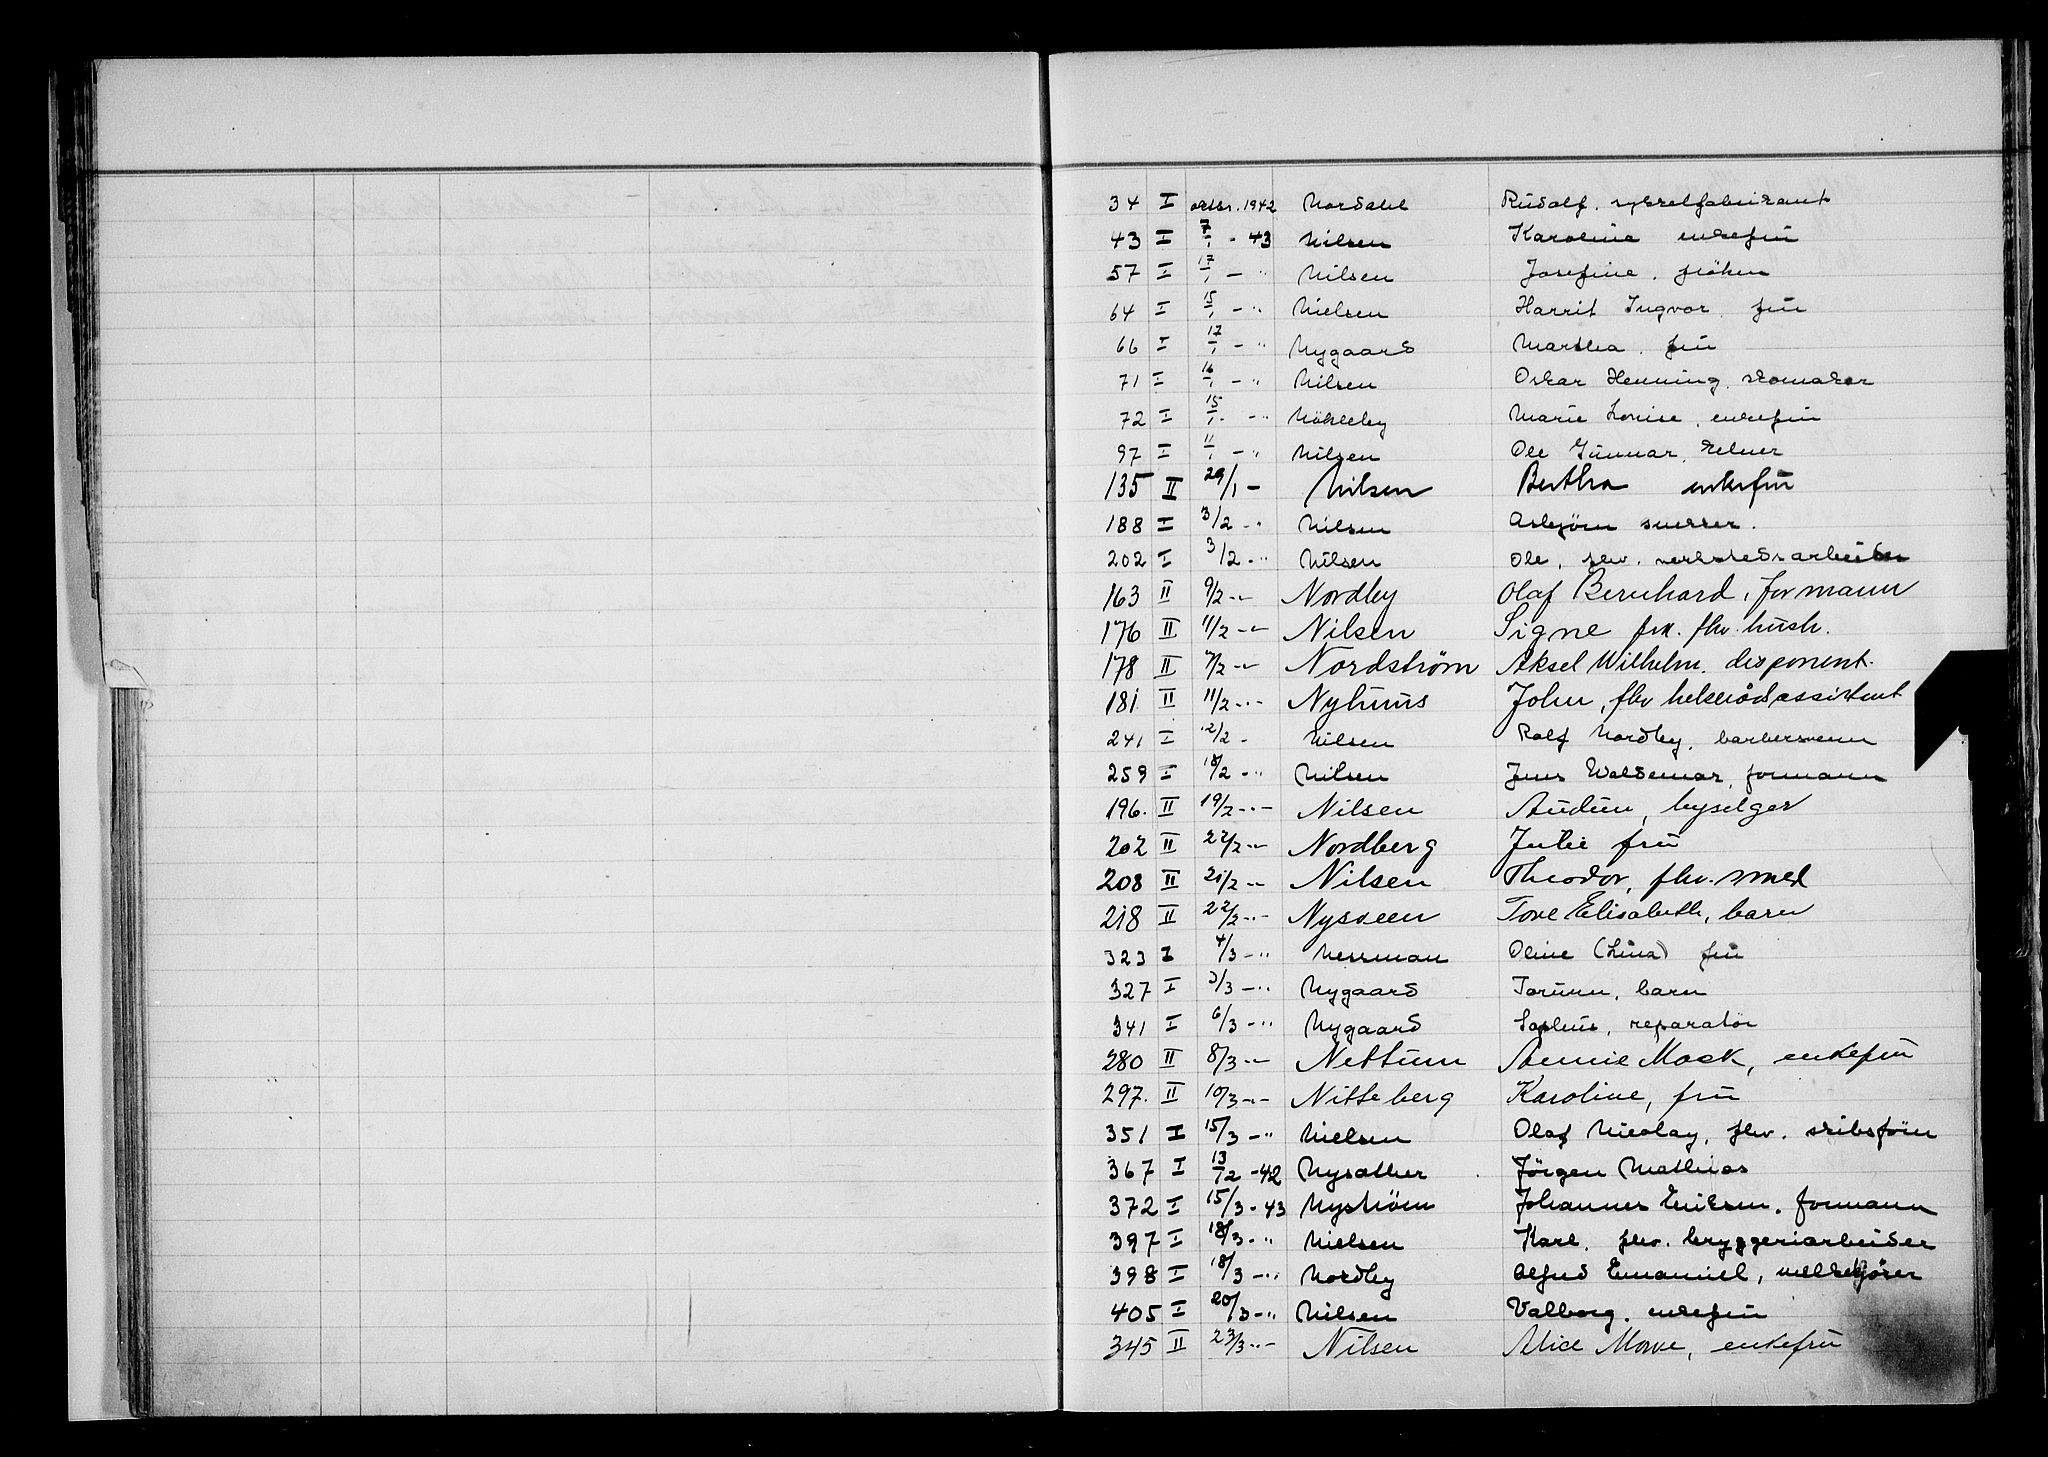 34 I oktbr. 1942 Nordahl Rudolf, sykkelfabrikant
43 I 7/1 - 43 Nilsen Karoline enkefrü
57 I 17/1 - " Nilsen Josefine, fröken
64 I 15/1 - " Nielsen Harrit Ingvor frü
66 I 17/1 - " Nygaard Martha, frü
71 I 16/1 - " Nilsen Oskar Henning, skomaker
72 I 15/1 - " Nökleby Marie Louise, enkefrü
97 I 11/1 - " Nilsen Ole Günnar, kelner
135 II 29/1 - Nilsen Bertha enkefrü
188 I 3/2 - " Nilsen Asbjörn snekker.
202 I 3/2 - " Nilsen Ole, fhv. verkstedsarbeider
163 II 9/2 - " Nordby Olaf Bernhard, formann
176 II 11/2 - " Nilsen Signe frk. fhv. hüsh.
178 II 7/2 - " Nordström Aksel Wilhelm, disponent.
181 II II 11/2 - " - Nyhuus John, fhv helserådsassistent
241 I 12/2 - Nilsen Rolf Nordby, barbersvenn
259 I 18/2 - " Nilsen Jens Waldemar, formann
196. II 19/2 - " - Nilsen Audün, byselger
202 II 22/2 - " Nordberg Julie frü
208 II 21/2 - " Nilsen Theodor, fhv. smed
218 II 22/2 - " - Nysveen Tove Elisabeth, barn
323 I 4/3 - " Nessman Oline (Lina) frü
327 I 3/3 - " Nygaard Torunn, barn
341 I 6/3 - " Nygaard Sophus, reparatör
280 II 8/3 - " Nettum Annie Mack, enkefrü
297. II 10/3 - " - Nitteberg Karoline, frü
351 I 15/3 - " Nielsen Olaf Nicolay, fhv. skibsförer
367 I 13/12 - 42 Nysather Jörgen Mathias
372 I 15/3 - 43 Nyström Johannes Eriksen, formann
397 I 18/3 - " Nielsen Karl, fhv. bryggeriarbeider
398 I 18/3 - " Nordby Alfred Emanuel, melkekjörer
405 I 20/3 - " Nilsen Valborg, enkefrü
345 II 23/3 - " - Nilsen Alice Mowe, enkefrü